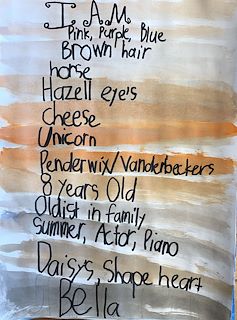 I AM
Pink, Purple, Blue
Brown hair
horse
Hazell eye's
cheese
Unicorn
Penderwix/Vanderbeckers
8 Years Old
Oldist in family
Summer, Actor, Piano
Daisys, Shape heart
Bella